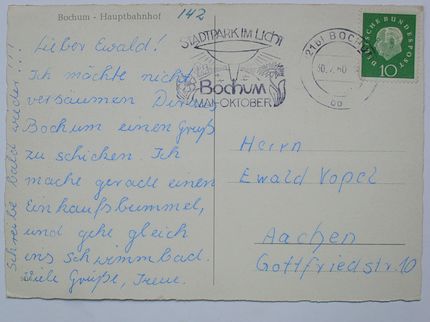 Bochum - Hauptbahnhof
142
Lieber Ewald!
Ich möchte nicht
versäumen Dir aus
Bochum einen Gruß
zu schicken. Ich
mache gerade einen
Einkaufsbummel,
und gehe gleich
ins Schwimmbad.
Viele Grüße, Irene.
Schreibe bald wieder!!!
STADTPARK IM LICHT
Bochum
MAI-OKTOBER
(21b) BOCHUM
60
DEUTSCHE BUNDESPOST
10
Herrn
Ewald Vopel
Aachen
Gottfriedstr. 10